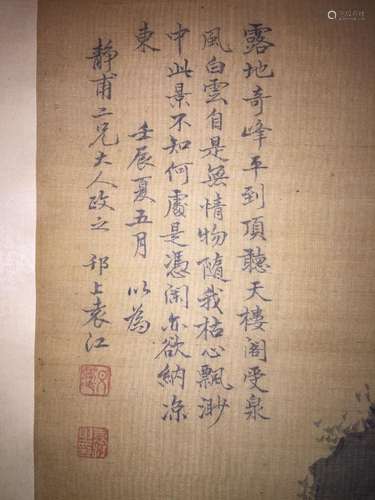 露地奇峰平到頂聽天樓閣受泉
風白雲自是無情物隨我枯心飄渺
中此景不知何處是憑闌亦欲納涼
東 壬辰夏五月 以為
靜甫二兄大人政之 邗上袁江